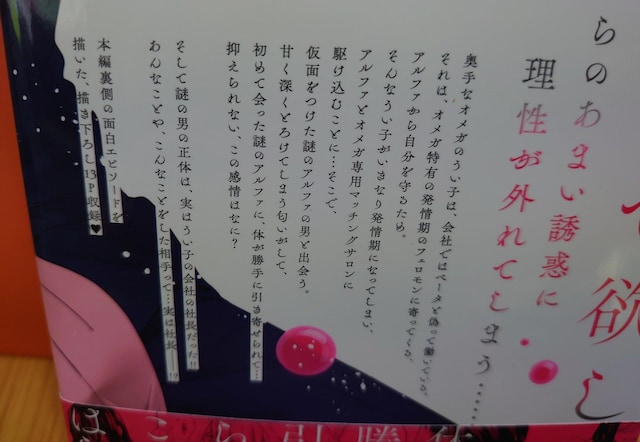 て欲し
らのあまい誘惑に
理性が外れてしまう……
奥手なオメガのうい子は、会社ではベータと偽って働いている。
それは、オメガ特有の発情期のフェロモンに寄ってくる、
アルファから自分を守るため。
そんなうい子がいきなり発情期になってしまい、
アルファとオメガ専用マッチングサロンに
駆け込むことに…そこで、
仮面をつけた謎のアルファの男と出会う。
甘く深くとろけてしまう匂いがして、
初めて会った謎のアルファに、体が勝手に引き寄せられて…
抑えられない、この感情はなに?
そして謎の男の正体は、実はうい子の会社の社長だった!!
あんなことや、こんなことをした相手って…実は社長――!?
本編裏側の面白エピソードを
描いた、描き下ろし13P収録♥